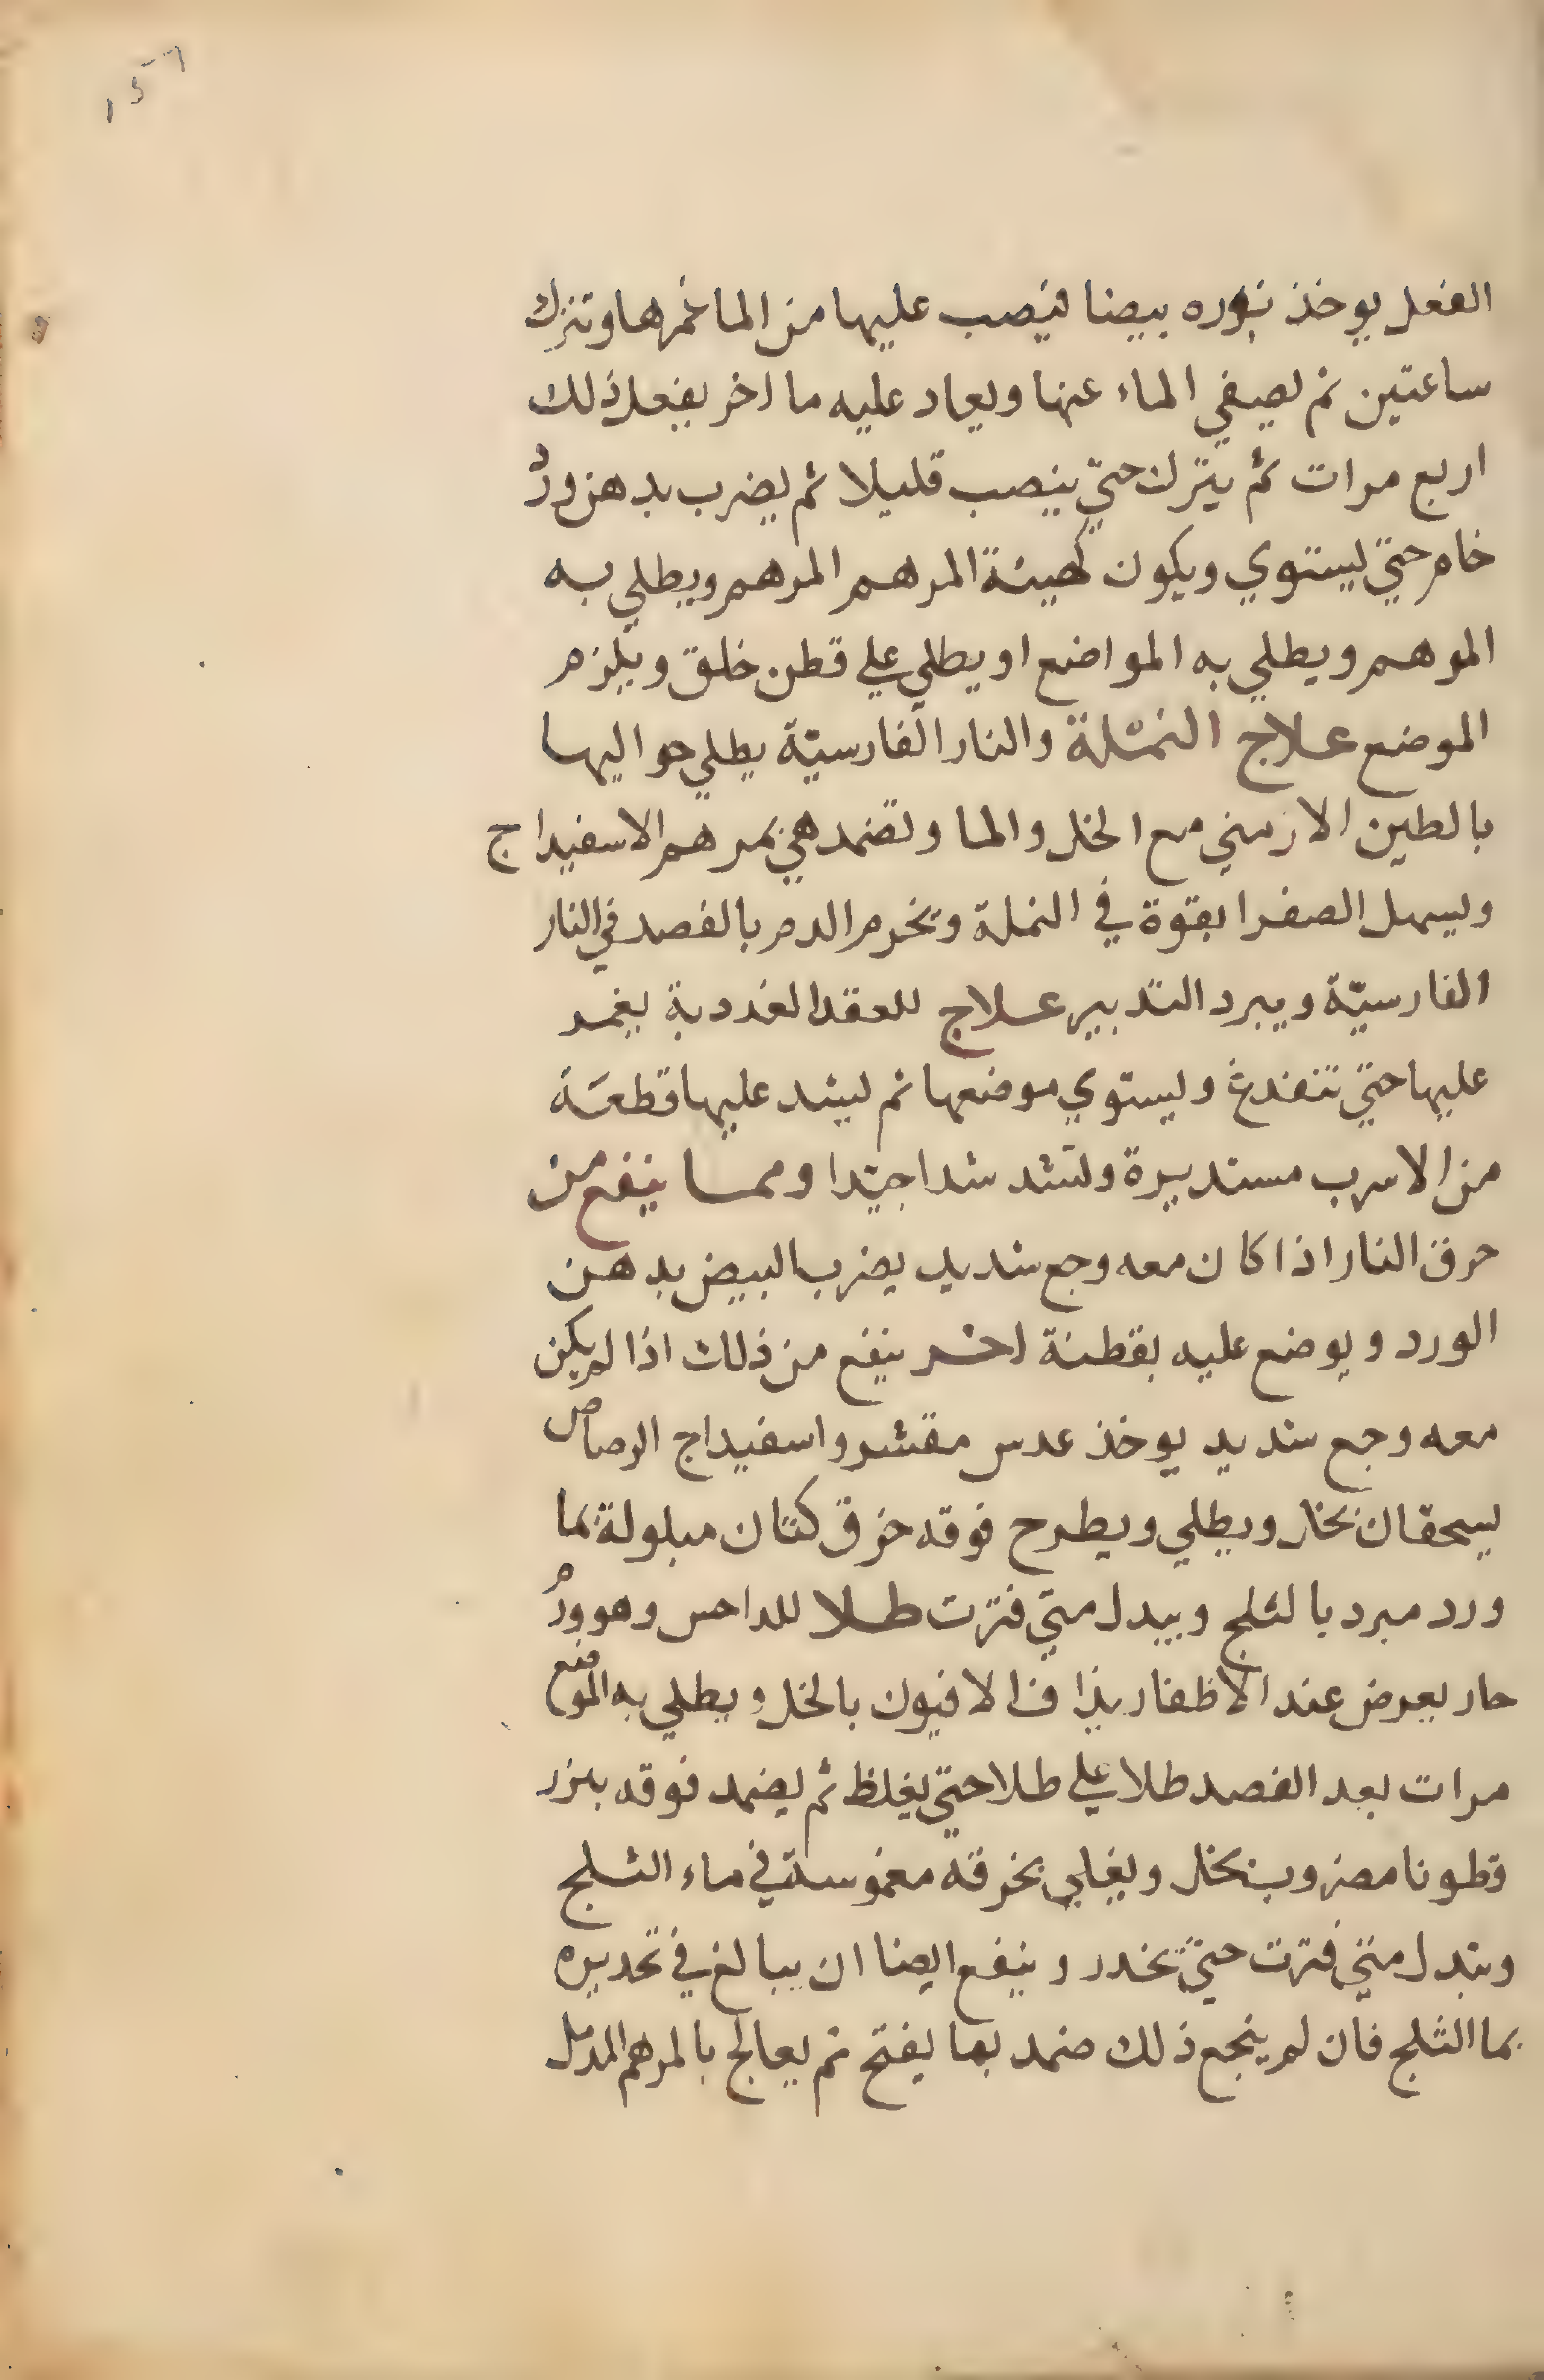 ١٥٦
الفعل يوخذ نوره بيضا فيصب عليها من الما غمرها وتترك
ساعتين ثم يصفي الماء عنها ويعاد عليه ما اخر يفعل ذلك
اربع مرات ثم يترك حتي ينصب قليلا ثم يضرب بدهن ورد
خام حتي يستوي ويكون كهيئة المرهم المرهم ويطلي به
الموهم ويطلي به المواضع او يطلي علي قطن خلق ويلزم
الموضع علاج النملة والنار الفارسيّة يطلي حواليها
بالطين الارمني مع الخل والما وتضمد هي بمرهم الاسفيداج
ويسهل الصفرا بقوة في النملة ويخرم الدم بالفصد في النار
الفارسيّة ويبرد التدبير علاج للعقد الغددية يغمد
عليها حتي تنفدغ ويستوي موضعها ثم يشد عليها قطعة
من الاسرب مستديرة وتشد شدا جيّدا ومما ينفع من
حرق النار اذا كان معه وجع شديد يضرب البيض بدهن
الورد ويوضع عليه بقطنة اخر ينفع من ذلك اذا لم يكن
معه وجع شديد يوخذ عدس مقشر واسفيداج الرصاص
يسحقان بخل ويطلي ويطرح فوقه خرق كتان مبلولة بما
ورد مبرد بالثلج ويبدل متي فترت طلا للداحس وهو ورم
حار يعرض عند الاظفار يذاف الافيون بالخل ويطلي به الموضع
مرات بعد الفصد طلا علي طلا حتي يغلظ ثم يضمد فوقه ببزر
قطونا مضروب بخل ويغلي بخرقة مغموسة في ماء الثلج
وتبدل متي فترت حتي تخدر وينفع ايضا ان يبالغ في تخديره
بما الثلج فان لم ينجع ذلك ضمد بما يفتح ثم يعالج بالمرهم المدمل